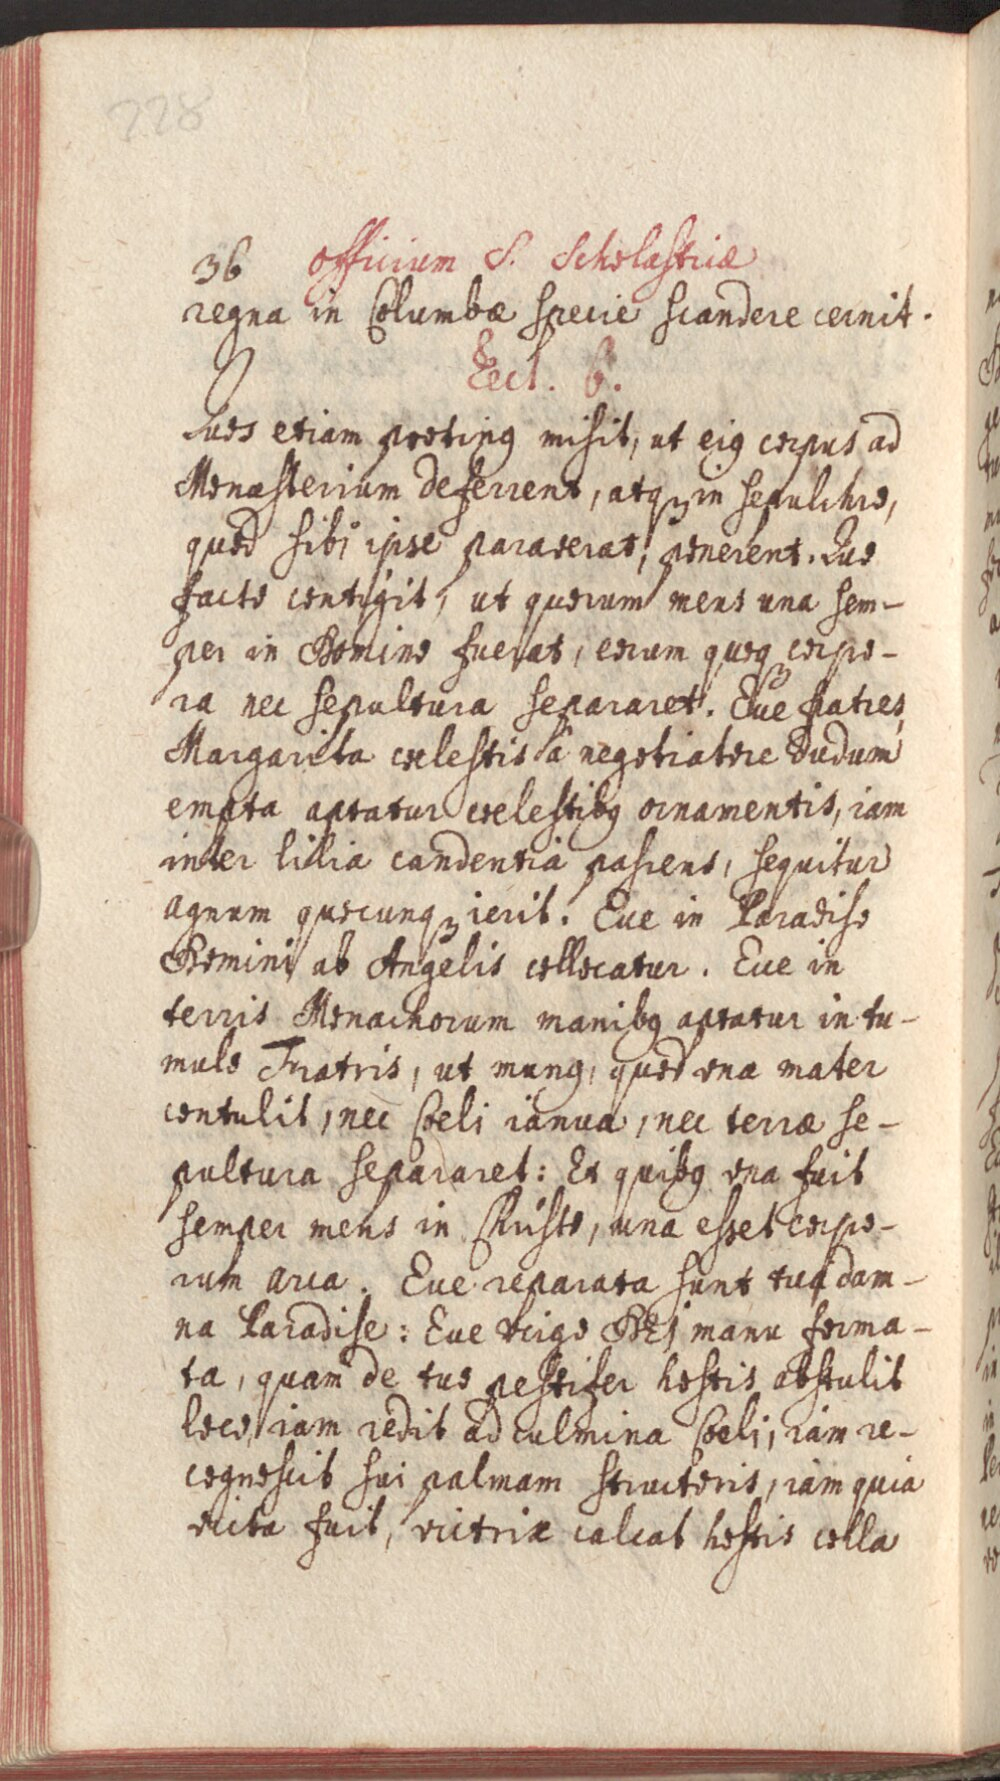 228
36 Officium S. Scholasticæ
regna in Columbæ specie scandere cernit.
Lect. 6.
Quos etiam protinꝰ misit, ut eiꝰ corpus ad
Monasterium deferrent, atqꝫ in sepulchro,
quod sibi ipse paraverat, ponerent. Quo
facto contigit, ut quorum mens una sem-
per in Domino fuerat, eorum quoqꝫ corpo-
ra nec sepultura separaret. Ecce fratres
Margarita cœlestis à negotiatore dudum
empta aptatur cœlestibꝰ ornamentis, iam
inter lilia candentia pasiens, sequitur
agnum quocunqꝫ ierit. Ecce in Paradiso
Domini ab Angelis collocatur. Ecce in
terris Monachorum manibꝰ aptatur in tu-
mulo Fratris, ut munꝰ, quod una mater
contulit, nec Coeli ianua, nec terræ se-
pultura separaret: Et quibꝰ una fuit
semper mens in Christo, una esset corpo-
rum arca. Ecce reparata sunt tua dam-
na Paradise: Ecce virgo DEI manu forma-
ta, quam de tuo pestifer hostis abstulit
loco, iam redit ad culmina Coeli, iam re-
cognoscit sui palmam structoris, iam quia
victa fuit, victrix calcat hostis colla